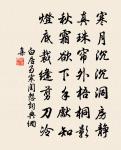 寒月沉沉洞房静
真珠帘外梧桐影
秋霜欲下手先知
灯底裁缝剪刀冷
白居易寒闺怨诗典网
集